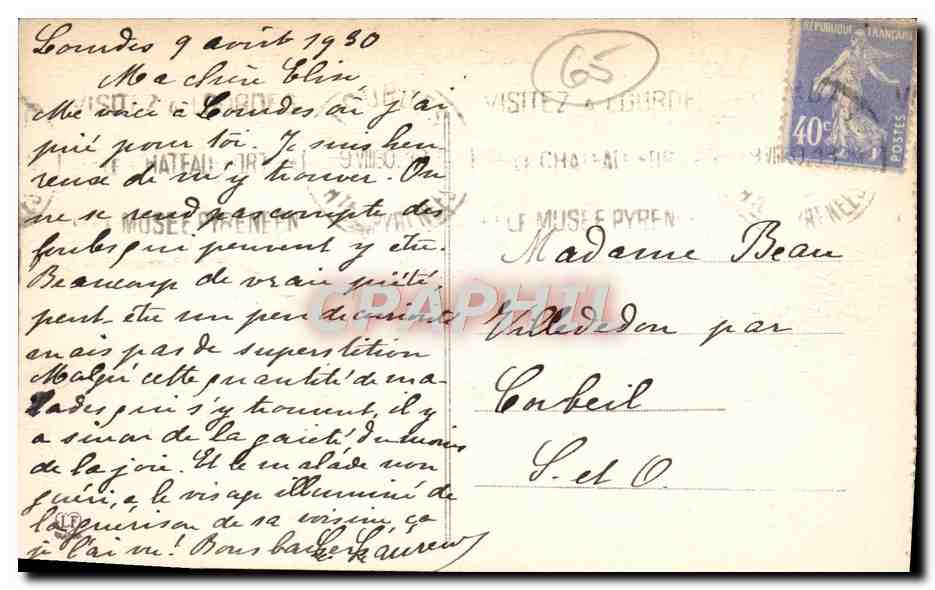 Lourdes 9 août 1930
Ma chère Elise
Me voici à Lourdes où j'ai
prié pour toi. Je suis heu-
reuse de m'y trouver. On
ne se rend pas compte des
foules qui peuvent y être.
Beaucoup de vraie piété,
peut-être un peu de curiosité
mais pas de superstition
Malgré cette quantité de ma-
lades qui s'y trouvent, il y
a sinon de la gaieté du moins
de la joie. Et le malade non
guéri, a le visage illuminé de
la guérison de sa voisine, ça
je l'ai vu! Bons baisers
Laurent
LF
65
RÉPUBLIQUE FRANÇAISE
40c
POSTES
VISITEZ LOURDES
LE CHATEAU FORT
LE MUSEE PYRENEEN
9 VIII 30
VISITEZ LOURDES
LE CHATEAU
LE MUSEE PYREN
PYRENEES
Madame Beau
Villededon par
Corbeil
S. et O.
CPAPHIL